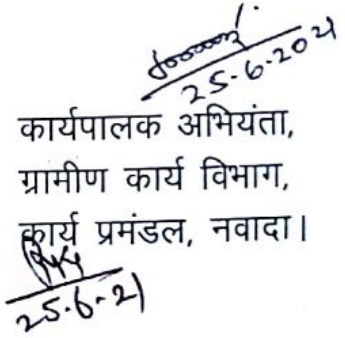 25.6.2021
कार्यपालक अभियंता,
ग्रामीण कार्य विभाग,
कार्य प्रमंडल, नवादा।
25.6-21